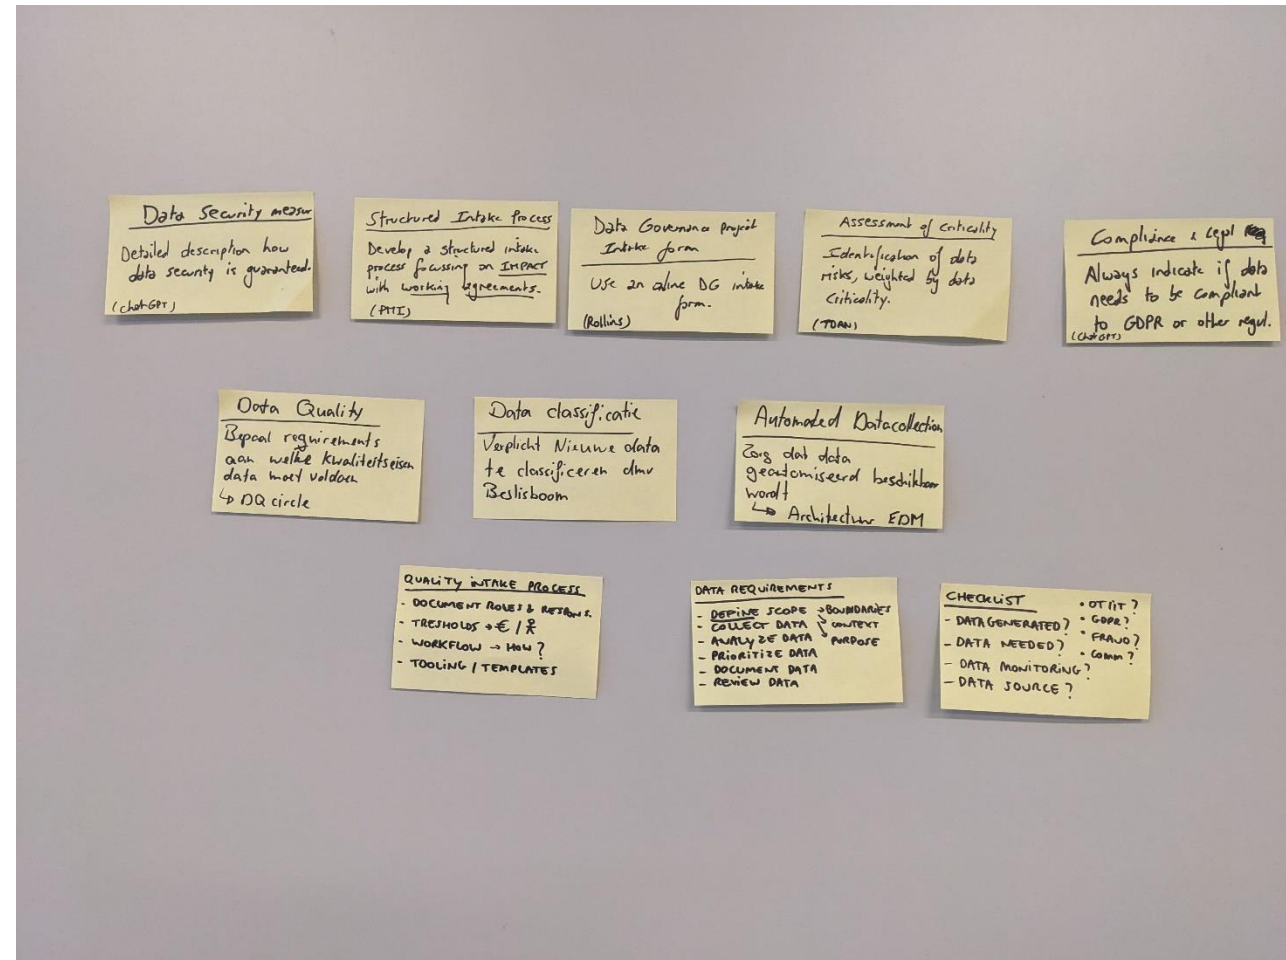 Data Security measur
Detailed description how
data security is guaranteed.
(chatGPT)
Structured Intake Process
Develop a structured intake
process focussing on IMPACT
with working agreements.
(PMI)
Data Governance project
Intake form
Use an online DG intake
form.
(Rollins)
Assessment of criticality
Identification of data
risks, weighted by data
criticality.
(TDAN)
Compliance & legal
Always indicate if data
needs to be compliant
to GDPR or other regul.
(ChatGPT)
Data Quality
Bepaal requirements
aan welke kwaliteitseisen
data moet voldoen
↳ DQ circle
Data classificatie
Verplicht Nieuwe data
te classificeren dmv
Beslisboom
Automated Datacollection
Zorg dat data
geautomiseerd beschikbaar
wordt
↳ Architectuur EDM
QUALITY INTAKE PROCESS
- DOCUMENT ROLES & RESPONS.
- TRESHOLDS → € /
- WORKFLOW → HOW?
- TOOLING / TEMPLATES
DATA REQUIREMENTS
- DEFINE SCOPE → BOUNDARIES
- COLLECT DATA ↘ CONTEXT
- ANALYZE DATA ↘ PURPOSE
- PRIORITIZE DATA
- DOCUMENT DATA
- REVIEW DATA
CHECKLIST
- DATA GENERATED?
- DATA NEEDED?
- DATA MONITORING?
- DATA SOURCE?
• OT/IT?
• GDPR?
• FRAUD?
• COMM?